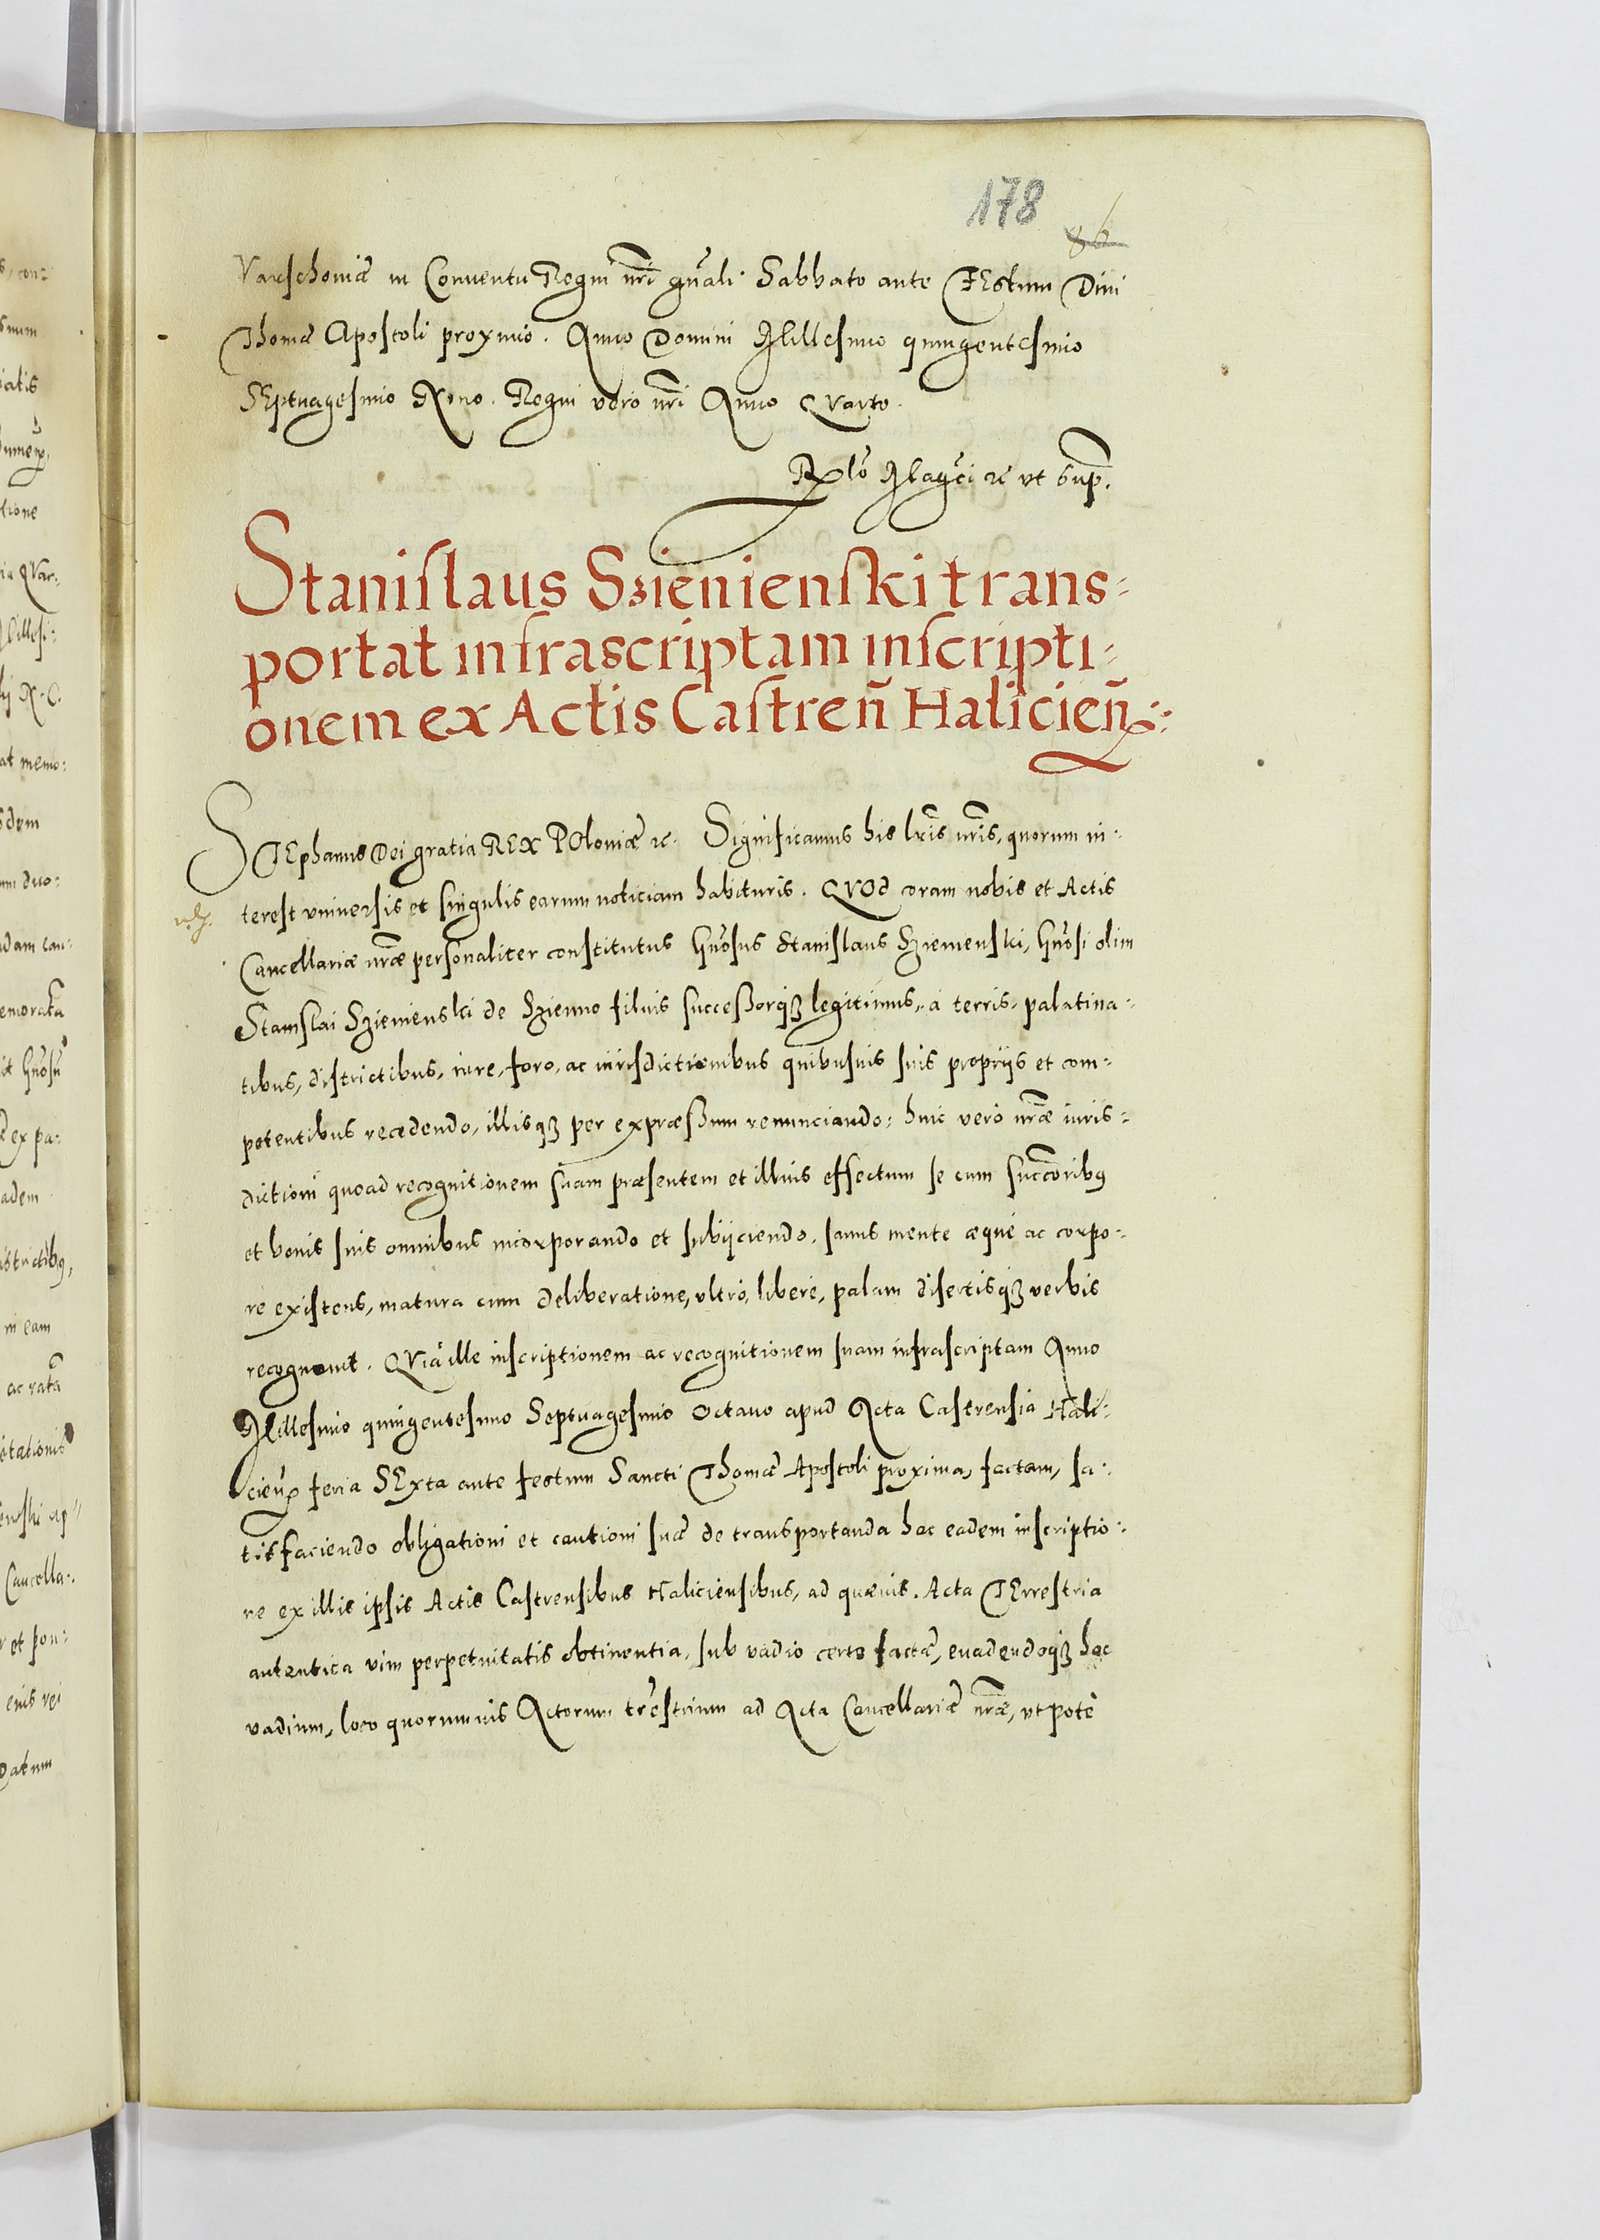 178
86
Varschoniæ in Conuentu Regni nr̃i gn̄ali. Sabbato ante FEstum Diui
Thomæ Apostoli proximo. Anno Domini Millesimo quingentesimo
SEptuagesimo Nono. Regni vero nr̃i Anno Qvarto.
Rełō Mag̃ci &c vt sup.
Stanislaus Szienienski trans-
portat infrascriptam inscripti-
onem ex Actis Castreñ Halicieñ.
STEphanus Dei gratia REX POloniæ &c. Significamus his lr̃is nr̃is, quorum in-
terest vniuersis et singulis earum noticiam habituris. QVOd coram nobis et Actis
Cancellariæ nr̃æ personaliter constitutus Gn̄osus Stanislaus Szienienski, Gn̄osi olim
Stanislai Szienienski de Szienno filius successorq3 legitimus, a terris, palatina-
tibus, districtibus, iure, foro, ac iurisdictionibus quibusuis suis proprijs et com-
petentibus recedendo, illisq3 per expræssum renunciando: huic verò nr̃æ iuris-
dictioni quoad recognitionem suam præsentem et illius effectum se cum succ̃oribus
et bonis suis omnibus incorporando et subijciendo, sanus mente æque ac corpo-
re existens, matura cum deliberatione, vltrò, liberè, palam disertisq3 verbis
recognouit. QVia ille inscriptionem ac recognitionem suam infrascriptam Anno
Millesimo quingentesimo Septuagesimo Octauo apud Acta Castrensia Hali-
cieñ feria SExta ante festum Sancti Thomæ Apostoli proxima, factam, sa-
tisfaciendo obligationi et cautioni suæ de transportanda hac eadem inscriptio-
ne ex illis ipsis Actis Castrensibus Haliciensibus, ad quæuis Acta TErrestria
autentica vim perpetuitatis obtinentia, sub vadio certo factæ, euadendoq3 hoc
vadium, loco quorumuis Actorum tr̃estrium ad Acta Cancellariæ nr̃æ, vtpotè